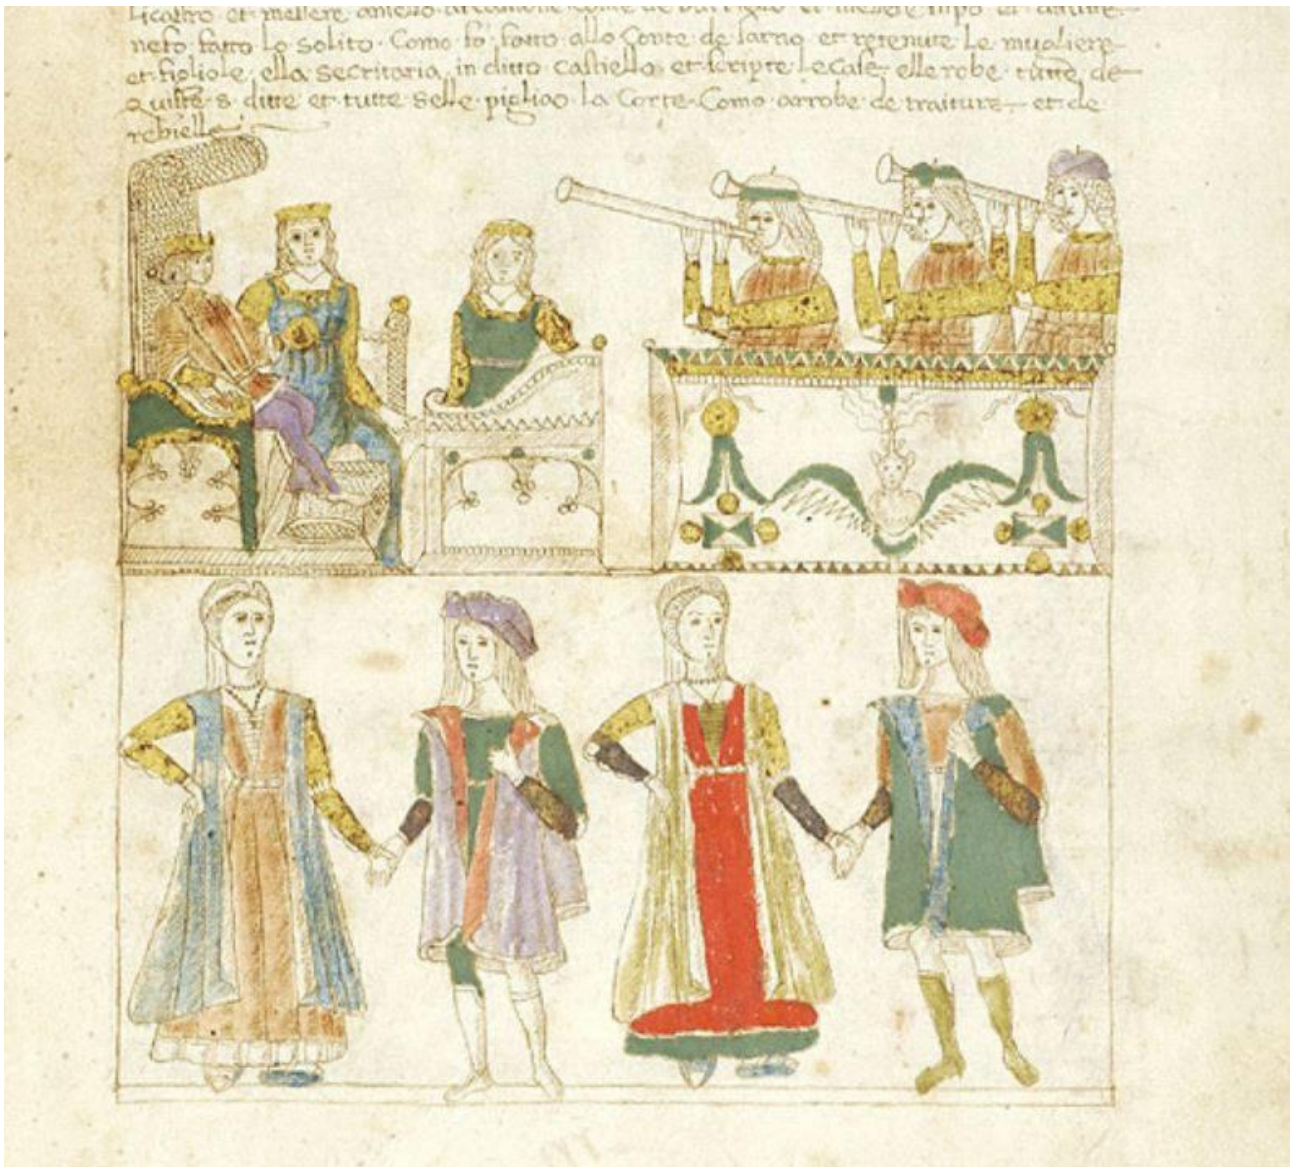 neto fatto lo solito. Como fo fatto allo Conte de sarno et retenute Le mugliere
et figliole, ella secritaria in ditto castiello et scripte Le case, elle robe tutte, de
quiste s. ditte et tutte selle pigliao la Corte. Como arrobe de traiture et de
rebielle